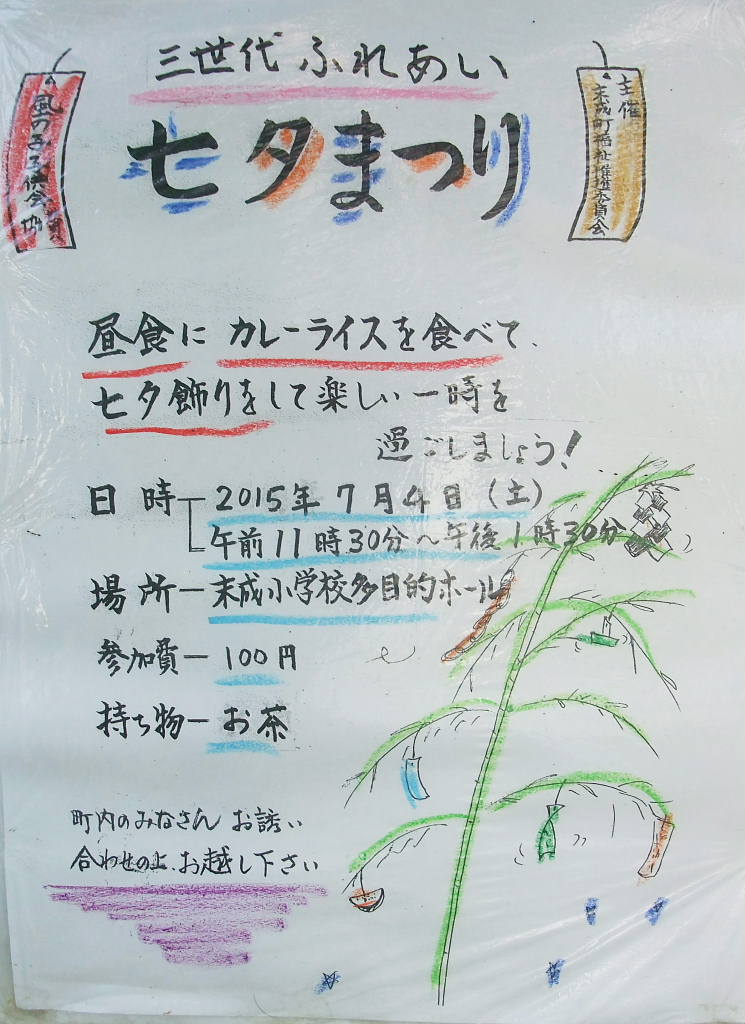 三世代ふれあい
七夕まつり
主催
末成町福祉推進委員会
昼食に カレーライスを食べて、
七夕飾りをして楽しい一時を
過ごしましょう!
日時 2015年7月4日(土)
午前11時30分~午後1時30分
場所ー末成小学校多目的ホール
参加費ー100円
持ち物ーお茶
町内のみなさん お誘い
合わせの上、お越し下さい